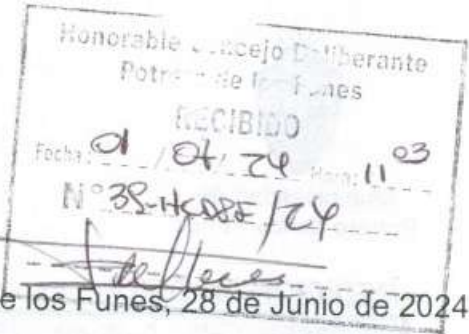 Honorable Concejo Deliberante
Potrero de los Funes
RECIBIDO
Fecha: 01 / 07 / 24 Hora: 11 03
N° 38-HCDSE/24
e los Funes, 28 de Junio de 2024